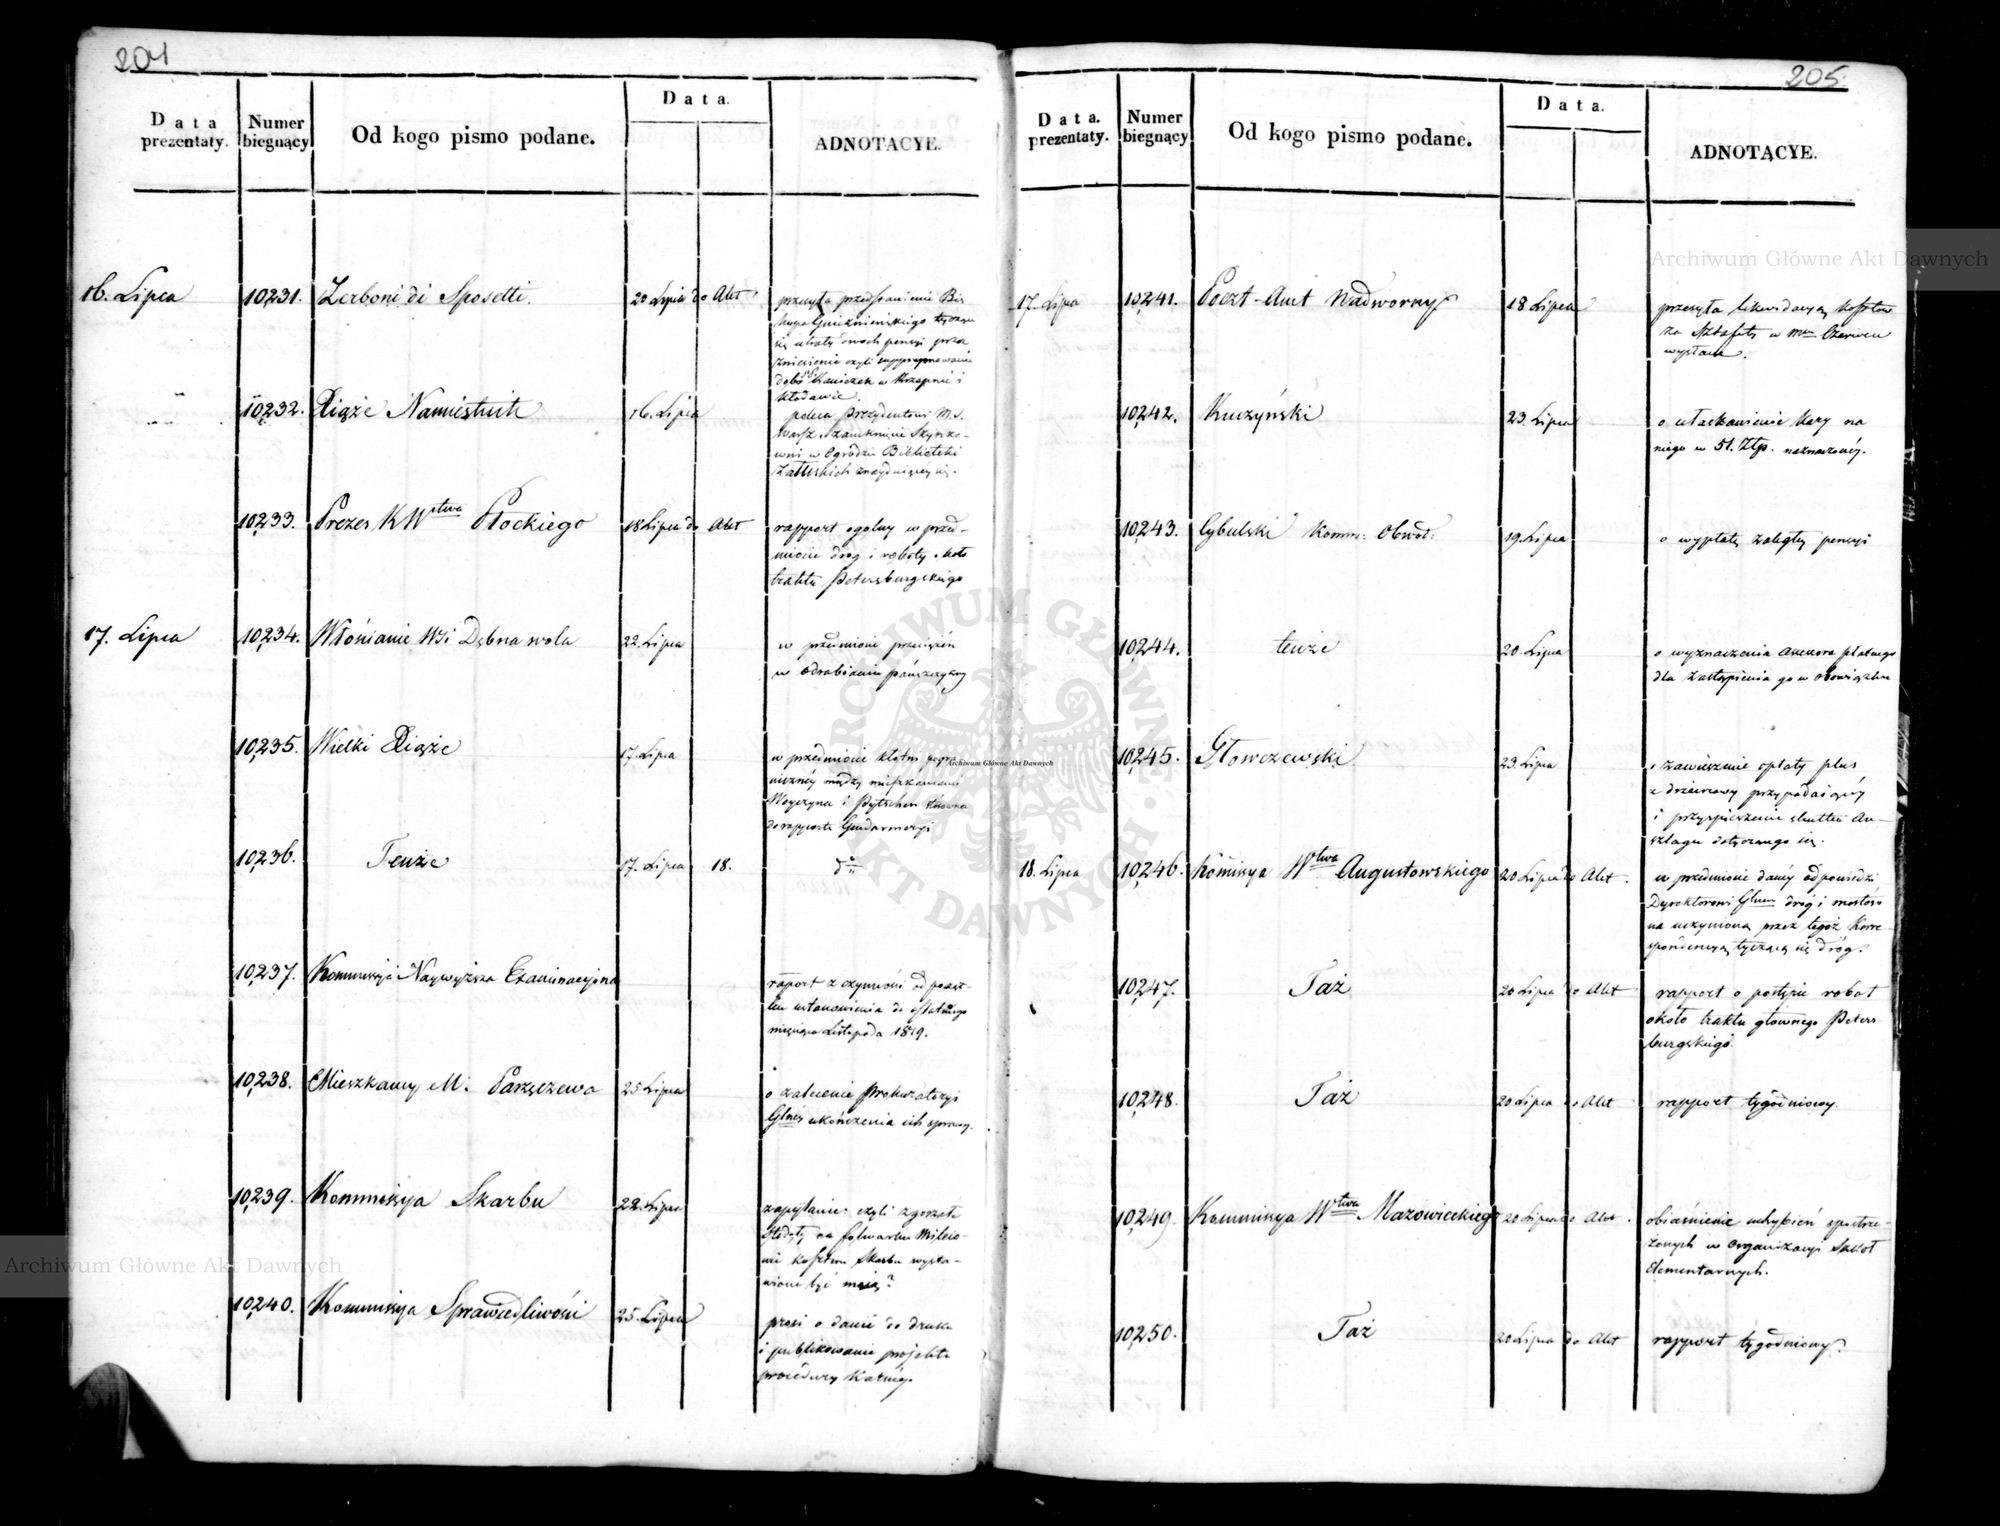 204
Data prezentaty.
Numer biegnący
Od kogo pismo podane.
Data.
ADNOTACYE.
16. Lipca 10,231. Zerboni di Sposetti. 20 Lipca do Akt
przesyła przedstawienie Bis
kupa Gnieźnieńskiego tyczące
się utraty swoich pensyi przez
zniesienie czyli
Dóbr w Krzepnie i
Kłodawie.
10,232. Xiąże Namiestnik 16. Lipca
poleca Prezydentowi M. S.
Warsz. zamknięcie Szynko-
wni w Ogrodzie Biblioteki
Załuskich znayduiącey się.
10,233. Prezes KWstwa Płockiego 18 Lipca do Akt
rapport ogólny w przed-
miocie dróg i roboty koło
traktu Petersburgskiego
17. Lipca 10,234. Włościanie Wsi Dębna wola 22. Lipca
w przedmiocie przeciążeń
w odrabianiu pańszczyzny
10,235. Wielki Xiąże 17. Lipca
w przedmiocie kłótni pogra
niczney między mieszkańcami
Woyczyna i Pytschen
do rapportu Gendarmeryi
10,236. Tenże 17. Lipca 18.
do
10,237. Kommissyia Naywyższa Examinacyjna
raport z czynności od począt-
ku ustanowienia do ostatniego
miesiąca Listopada 1819.
10,238. Mieszkańcy M. Parzęczewa 25 Lipca
o zalecenie Prokuratoryi
Glney ukończenia ich sprawy.
10,239. Kommissya Skarbu 22. Lipca
zapytanie czyli zgorzałe
na folwarku
kosztem Skarbu wysta-
wione być maią?
10,240. Kommissya Sprawiedliwości 25. Lipca
prosi o danie do druku
i publikowanie projektu
procedury Karnéy.
205
Data. prezentaty.
Numer biegnący
Od kogo pismo podane.
Data.
ADNOTACYE.
17. Lipca 10,241. Poczt-Amt Nadworny 18 Lipca
przesyła likwidacyą kosztów
za Sztafety w mcu Czerwcu
wysłane.
10,242. Kuczyński 23. Lipca
o ułaskawienie kary na
niego w 51. Ztp. naznaczonéy.
10,243. Cybulski Komm: Obwod: 19. Lipca
o wypłatę zaległey pensyi
10,244. tenże 20. Lipca
o wyznaczenia Assessora płatnego
dla zastąpienia go w obowiązku
10,245. Głowczewski 23. Lipca
o zawieszenie opłaty plus
z dzierżawy przypadaiącéy
i przyspieszenie skutku An-
szlagu dotyczącego się.
18. Lipca 10,246. Kommisya Wtwa Augustowskiego 20 Lipca do Akt.
w przedmiocie danéy odpowiedzi
Dyrektorowi Glnemu dróg i mostów
na uczynioną przez tegoż Korre-
spondencyą tyczącą się dróg.
10,247. Taż 20 Lipca do Akt
rapport o postępie robot
około traktu głównego Peters-
burgskiego
10,248. Taż 20 Lipca do Akt
rapport tygodniowy.
10,249. Kommissya Wtwa Mazowieckiego 20 Lipca do Akt.
obiaśnienie uchybień spostrze-
żonych w organizacyi Szkół
Elementarnych.
10,250. Taż 20 Lipca do Akt
rapport tygodniowy.
Archiwum Główne Akt Dawnych
Archiwum Główne Akt Dawnych
Archiwum Główne Akt Dawnych
ARCHIWUM GŁÓWNE AKT DAWNYCH